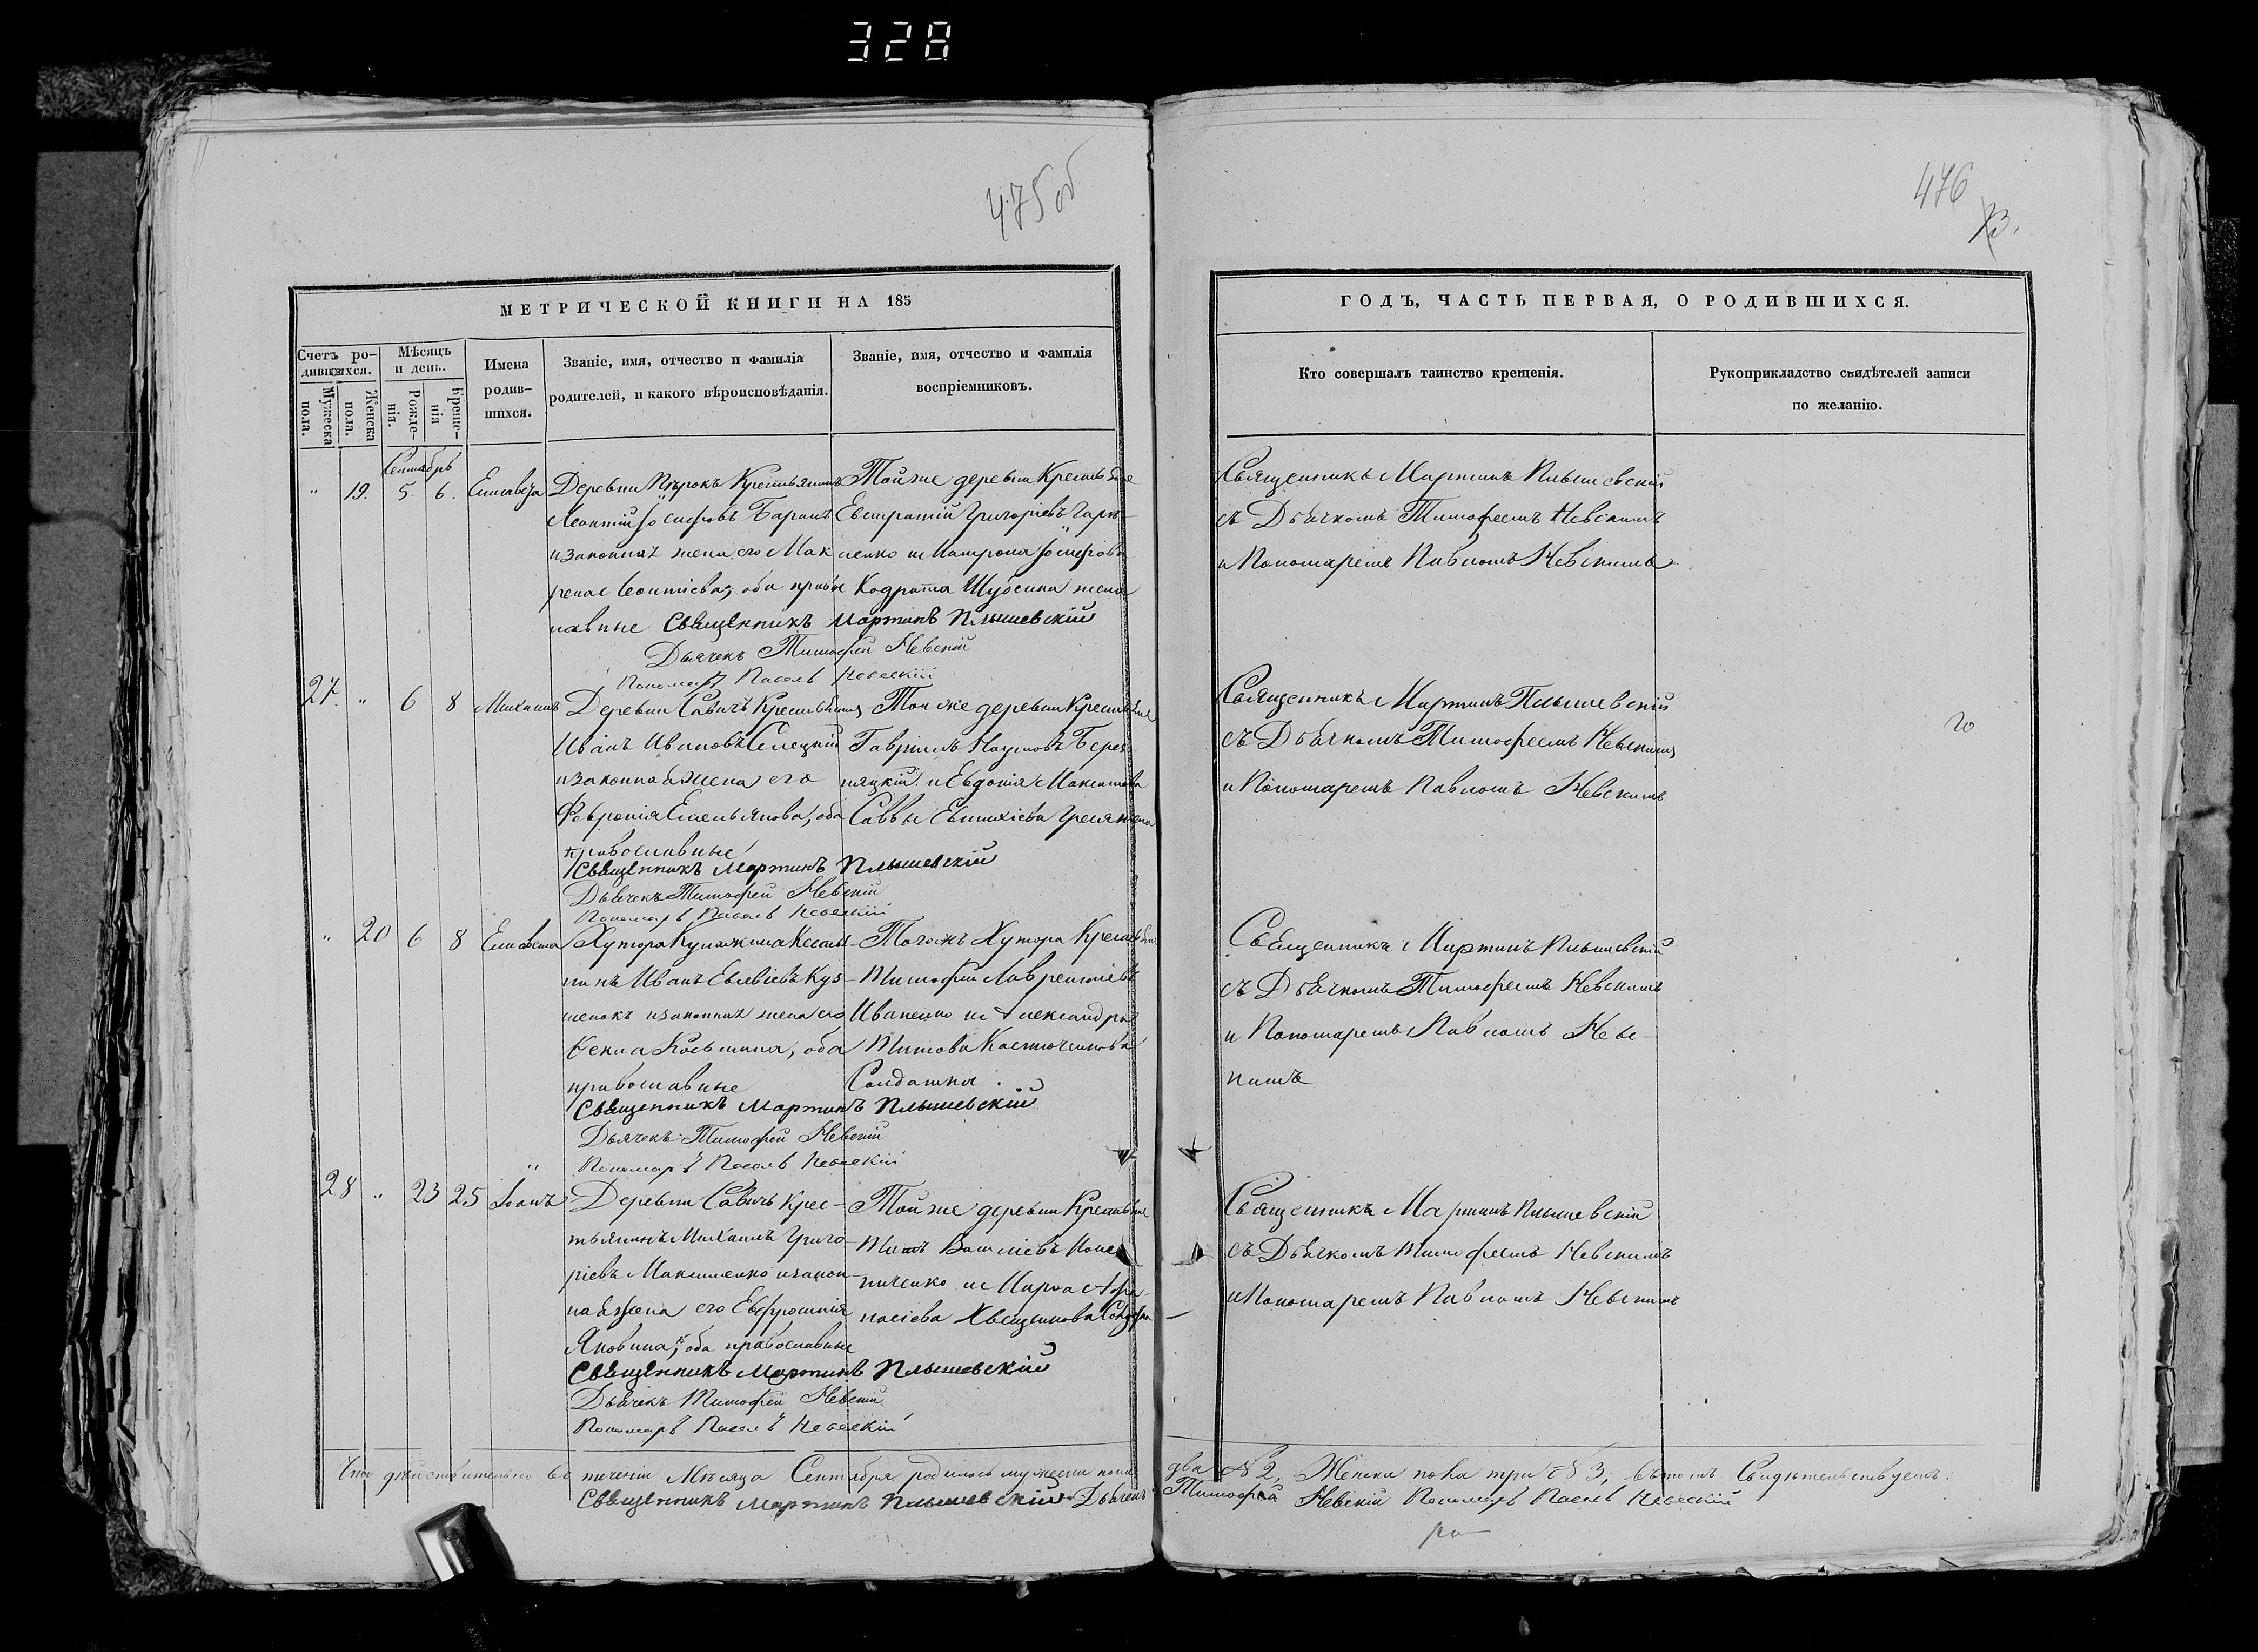 328
475об
476
МЕТРИЧЕСКОЙ КНИГИ НА 185
Счетъ ро-
дившихся.
Мужеска пола.
Женска пола.
Мѣсяцъ
и день.
Рожде-
нія.
Креще-
нія
Имена
родив-
шихся.
Званіе, имя, отчество и фамилія
родителей, и какого вѣроисповѣданія.
Званіе, имя, отчество и фамилія
воспріемниковъ.
Сентябрь
" 19. 5. 6. Елисавета
Деревни Крестьянинъ
Леонтій Іосифовъ
и законная жена его Мак
рена Леонтіева, оба право
славные
Тойже деревни Крестьяне
Евстратій Григорьевъ
и Матрона Іосифова
Кодрата жена
Священникъ Мартинъ Плышевскій
Дьячекъ Тимофей Невскій
Пономарь Павелъ Невскій
27. " 6 8 Михаилъ
Деревни Савичъ Крестьянинъ
Иванъ Ивановъ Селецкій
и законная жена его
Февронія Емельянова, оба
православные
Той же деревни Крестьяне
Гавріилъ Наумовъ Берез
няцкій и Евдокія Максимова
Саввы жена
Священникъ Мартинъ Плышевскій
Дьячекъ Тимофей Невскій
Пономарь Павелъ Невскій
" 20 6 8 Елисавета
Хутора
нинъ Иванъ Куз-
менокъ и законная жена его
оба
православные
Тогожъ Хутора Крестьяне
Тимофей Лаврентіевъ
Иваненко и Александра
Титова
Солдатка.
Священникъ Мартинъ Плышевскій
Дьячекъ Тимофей Невскій
Пономарь Павелъ Невскій
28 " 23 25 Іоанъ
Деревни Савичъ Крес-
тьянинъ Михаилъ Григо-
ріевъ Максименко и закон-
ная жена его Евфросинія
Яковина, оба православные
Тойже деревни Крестьяне
Титъ Василіевъ
ниченко и Марфа Афа-
насіева
Священникъ Мартинъ Плышевскій
Дьячекъ Тимофей Невскій
Пономарь Павелъ Невскій
Что дѣйствительно въ теченіи Мѣсяца Сентября родилось мужеска пола
Священникъ Мартинъ Плышевскій Дьячекъ
ГОДЪ, ЧАСТЬ ПЕРВАЯ, О РОДИВШИХСЯ.
Кто совершалъ таинство крещенія.
Рукоприкладство свидѣтелей записи
по желанію.
Священникъ Мартинъ Плышевскій
съ Дьячкомъ Тимофеемъ Невскимъ
и Пономаремъ Павломъ Невскимъ
Священникъ Мартинъ Плышевскій
съ Дьячкомъ Тимофеемъ Невскимъ
и Пономаремъ Павломъ Невскимъ
Священникъ Мартинъ Плышевскій
съ Дьячкомъ Тимофеемъ Невскимъ
и Пономаремъ Павломъ Невс-
кимъ
Священникъ Мартинъ Плышевскій
съ Дьячкомъ Тимофеемъ Невскимъ
и Пономаремъ Павломъ Невскимъ
два № 2, Женска пола три № 3, въ томъ Свидѣтельствуемъ.
Тимофей Невскій Пономарь Павелъ Невскій